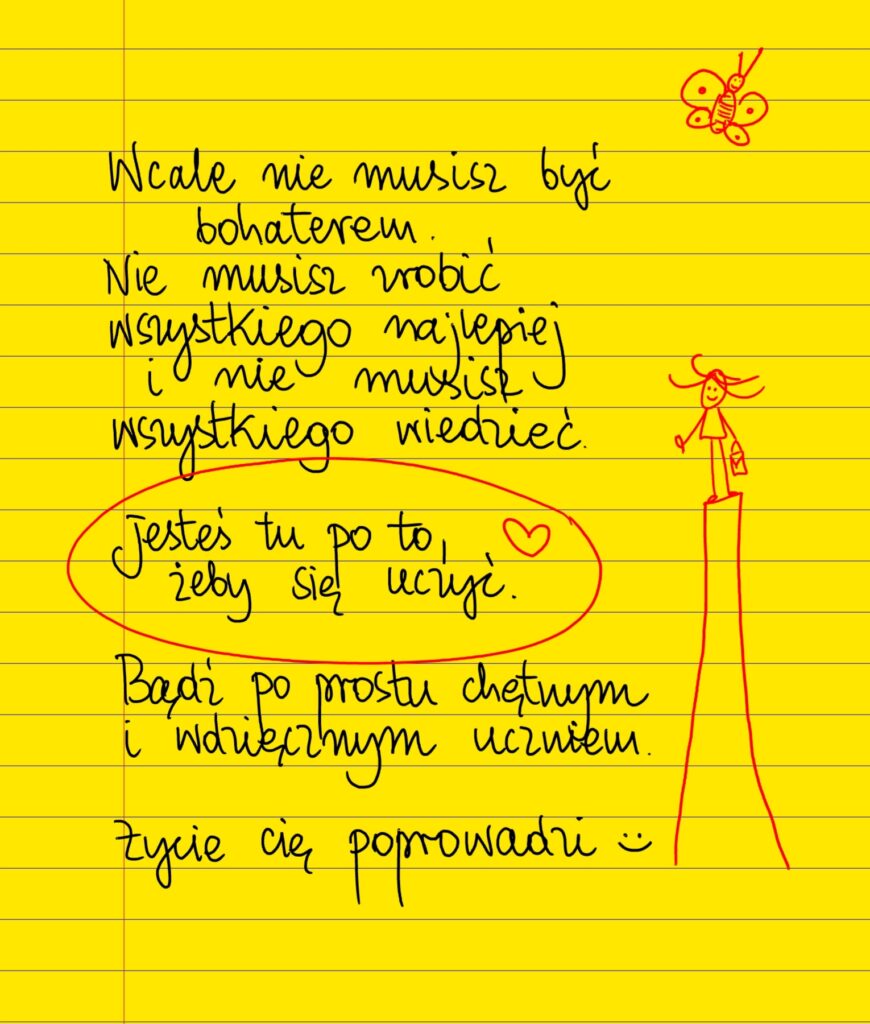 Wcale nie musisz być
bohaterem.
Nie musisz zrobić
wszystkiego najlepiej
i nie musisz
wszystkiego wiedzieć.
Jesteś tu po to,
żeby się uczyć.
Bądź po prostu chętnym
i wdzięcznym uczniem.
Życie cię poprowadzi :)